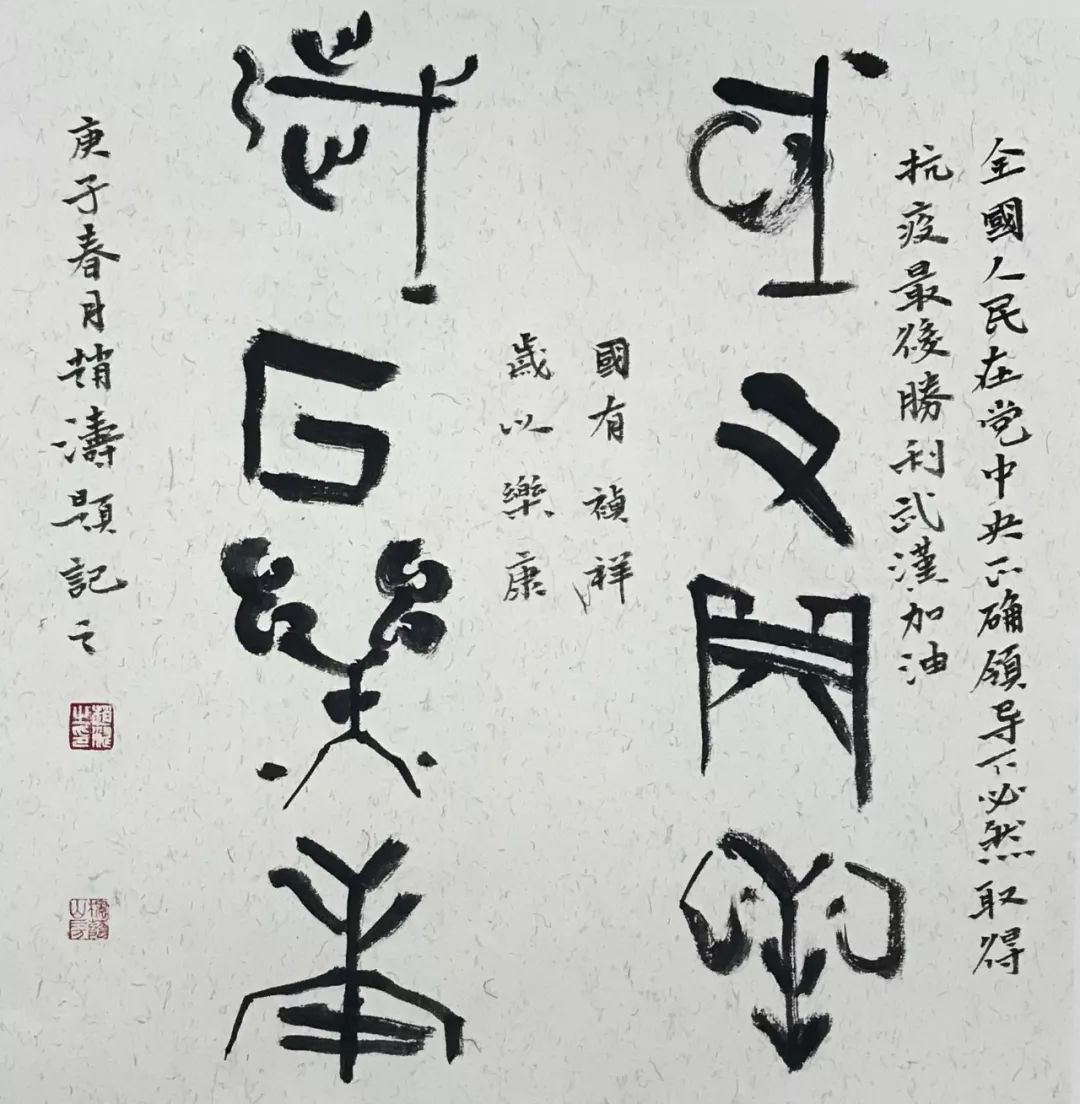 全國人民在党中央正确領导下必然取得
抗疫最後勝利武漢加油
國有禎祥
國有禎祥
歲以樂康
歲以樂康
庚子春月趙濤題記之